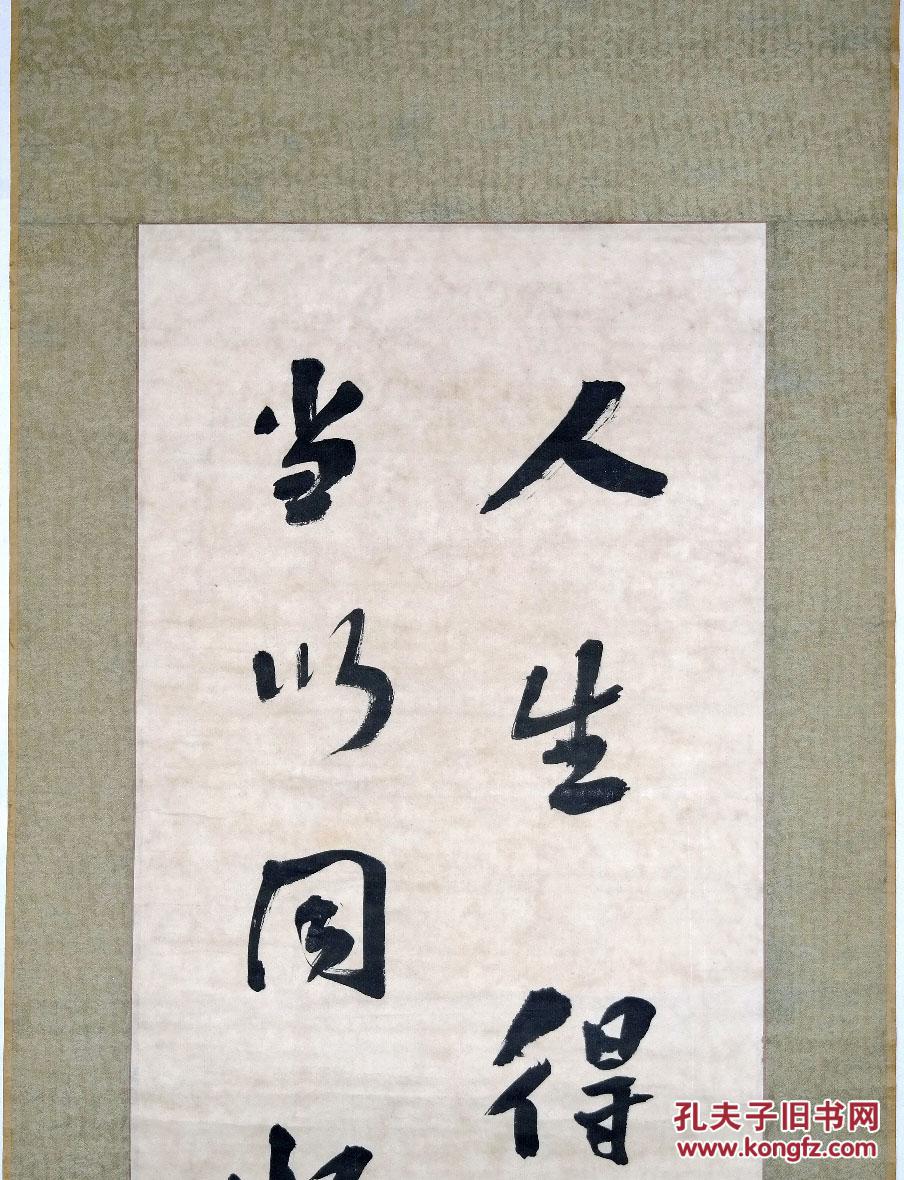 人生得
当以同
孔夫子旧书网
www.kongfz.com